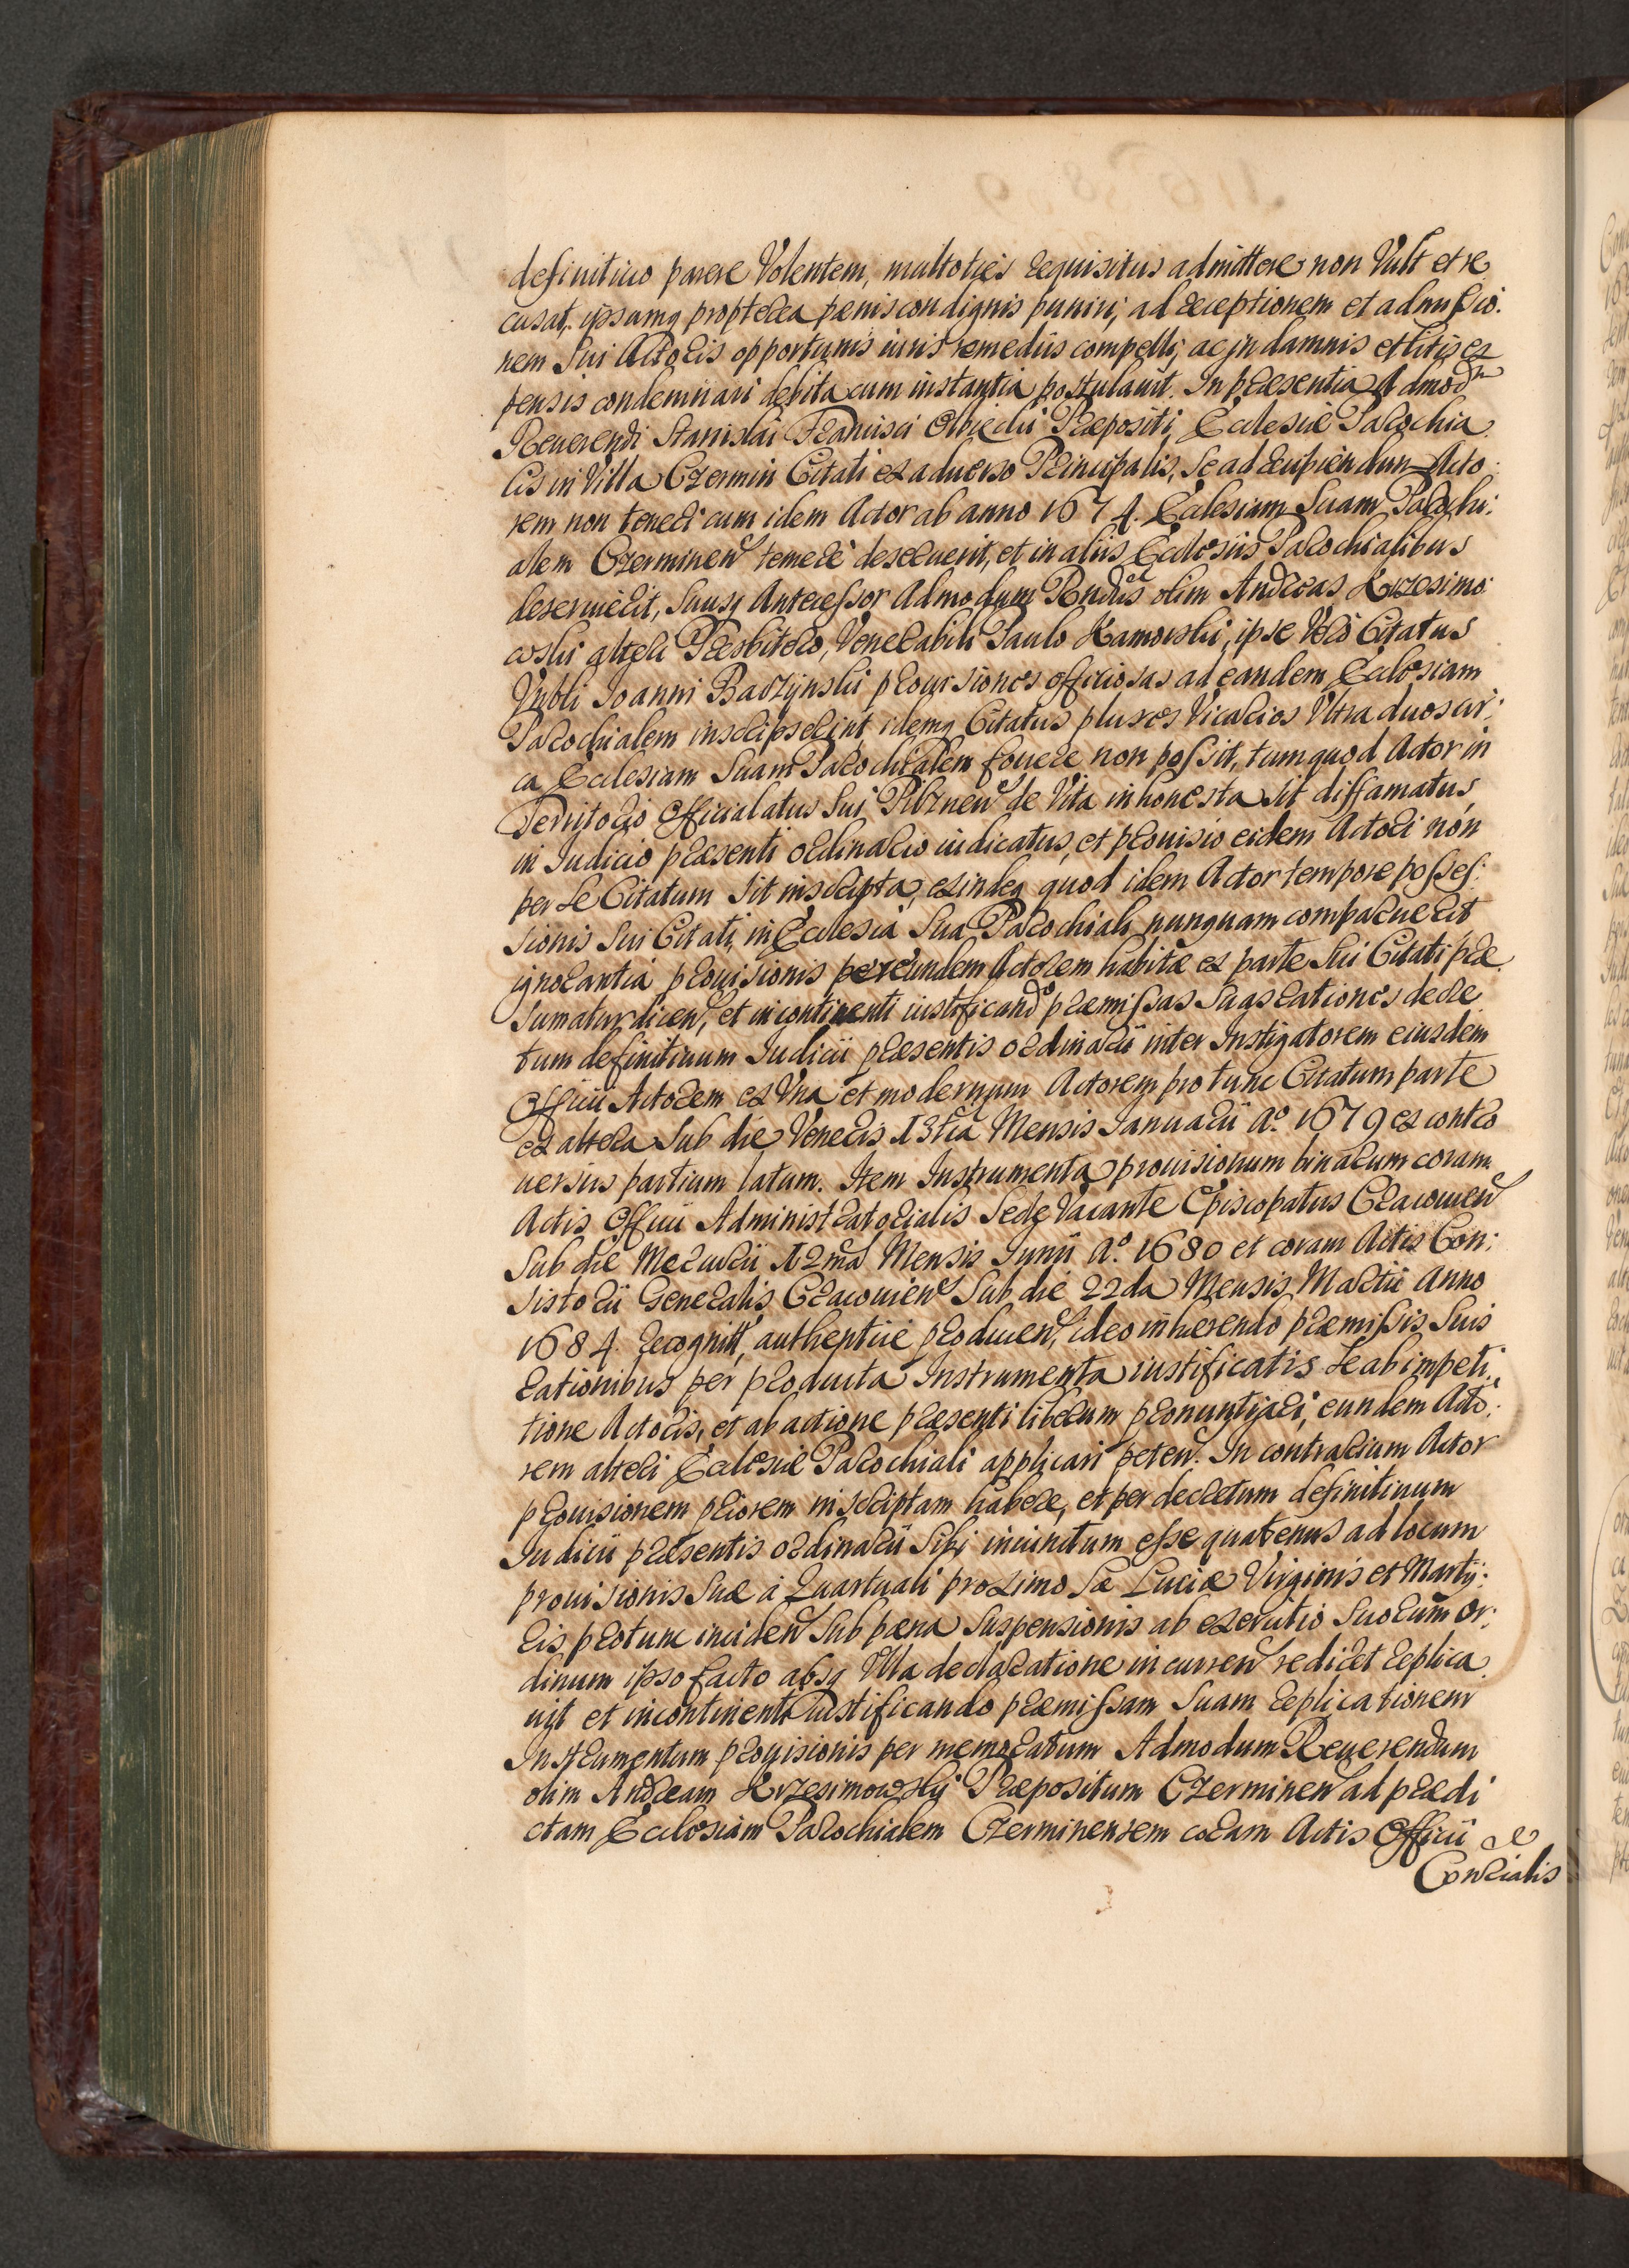 definitiuo parere Volentem, multoties requisitus admittere non Vult et re
cusat, ipsumq propterea pœnis condignis puniri, ad receptionem et admissio:
nem Sui Actoris opportunis iuris remediis compelli, ac in damnis et litis ex
pensis condemnari debita cum instantia postulauit. In præsentia Admodm
Reuerendi Stanislai Francisci Præpositi Ecclesiæ Parochia
lis in Villa Czermin Citati ex aduerso Principalis, se ad recipiendum Acto:
rem non teneri cum idem Actor ab anno 1674. Ecclesiam Suam Parochi:
alem Czerminen temere deseruerit, et in aliis Ecclesiis Parochialibus
deseruierit, Suusq Antecessor Admodum Rndus olim Andreas Krzesimo:
wski alteri Presbitero, Venerabili Paulo Kamowski, ipse Vero Citatus
Vnbli Joanni Barzynski prouisiones officiosas ad eandem Ecclesiam
Parochialem inscripserint idemq Citatus plures Vicarios Vltra duos cir:
ca Ecclesiam Suam Parochialem fouere non possit, tum quod Actor in
Territorio Officialatus Sui Pilznen de Vita inhonesta sit diffamatus,
in Iudicio præsenti ordinario iudicatus, et prouisio eidem Actori non
per Se Citatum sit inscripta, exindeq quod idem Actor tempore posses:
sionis Sui Citati, in Ecclesia Sua Parochiali nunquam comparuerit
ignorantia prouisionis per eundem Actorem habitæ ex parte Sui Citati præ
sumatur dicen, et incontinenti iustificando præmissas Suas rationes decre
tum definitiuum Iudicii præsentis ordinarii inter Instigatorem eiusdem
Officii Actorem ex Vna et modernum Actorem pro tunc Citatum parte
ex altera Sub die Veneris 13tia Mensis Ianuarii Ao. 1679 ex contro
uersiis partium latum. Item Instrumenta prouisionum binarum coram
Actis Officii Administratorialis Sede Vacante Episcopatus Cracouien
Sub die Mercurii 12ma Mensis Iunii Ao. 1680 et coram Actis Con:
sistorii Generalis Cracouien Sub die 22da Mensis Martii Anno
1684. recognit, authentice producen, ideo inhærendo præmissis Suis
rationibus per producta Instrumenta iustificatis Se ab impeti:
tione Actoris, et ab actione præsenti liberum pronuntiari, eundem Acto:
rem alteri Ecclesiæ Parochiali applicari peten. In contrarium Actor
prouisionem priorem inscriptam habere, et per decretum definitiuum
Iudicii præsentis ordinarii Sibi iniunctum esse quatenus ad locum
prouisionis Suæ à Quartuali proximo Sæ Luciæ Virginis et Marty:
ris protunc inciden Sub pæna Suspensionis ab exercitio Suorum Or:
dinum ipso facto absq Vlla declaratione incurren rediret replica
uit et incontinenti Iustificando præmissam Suam replicationem
Instrumentum prouisionis per memoratum Admodum Reuerendum
olim Andream Krzesimowskij Præpositum Czerminen ad prædi
ctam Ecclesiam Parochialem Czerminensem coram Actis Officii